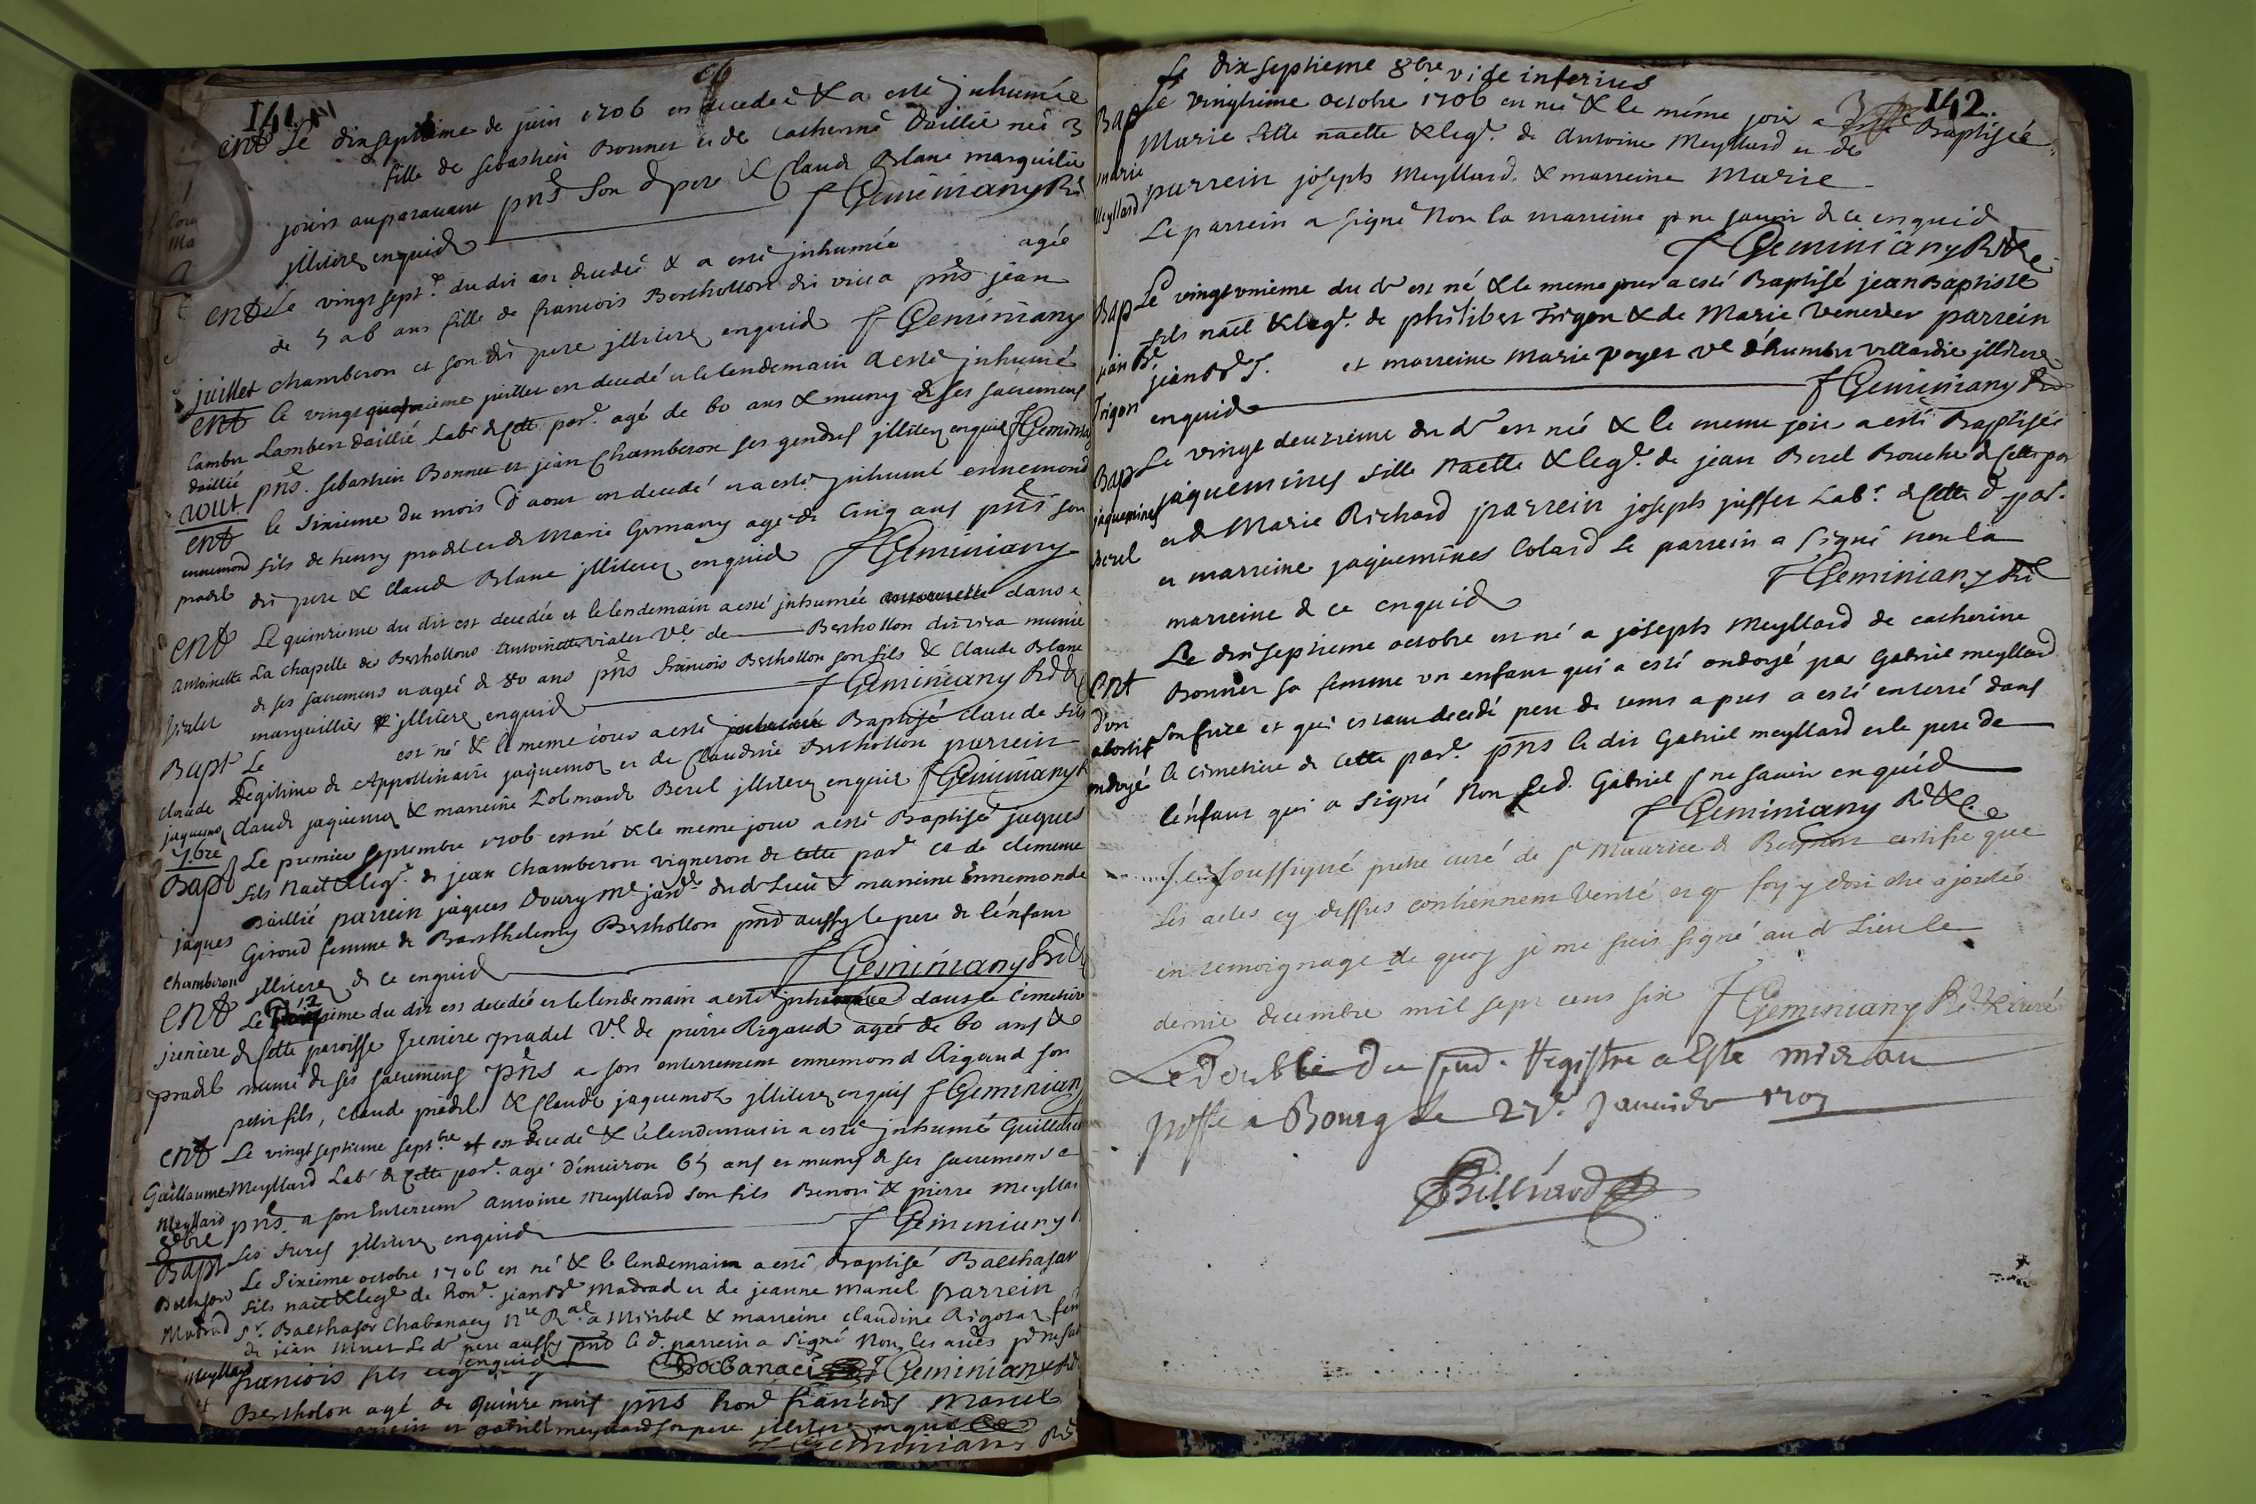 141
Ent Le dixseptieme de juin 1706 est decedeé & a esté jnhumeé
fille de sebastien Bonnet et de Catherine Daillié neé 3
jours auparavant pnts Son d pere & Claude Blanc marguilié
jlliterez enquis f Geminiany Rd
Ent Le vingt sept.e du dit est decedeé & a esté jnhumeé agée
de 5 a 6 ans fille de francois Berthollon dit vira pnts jean
Chamberon et son dit pere jlliterez enquis f Geminiany
juillet
Ent le vingt quatrieme juillet est decedé et le lendemain a esté jnhumé
Lambert Daillié Lambert Daillié Labr de Cette parr. agé de 60 ans & muny de ses sacremens
pnts. sebastien Bonnet et jean Chamberon ses gendres jlliterez enquis f Geminiany
aout
Ent le Sixieme du mois d'aout est decedé et a esté jnhumé ennemond
ennemond pradel fils de henry pradel et de Marie Germany agé de Cinq ans pnts son
dit pere & Claude Blanc jlliterez enquis f Geminiany
Ent Le quinzieme du dit est decedée et le lendemain a esté jnhumée dans
Antoinette Vialet La Chapelle des Berthollons Antoinette vialet Ve de Berthollon dit vira munie
de ses sacremens et ageé de 80 ans pnts francois Berthollon son fils & Claude Blanc
marguillier jlliterez enquis f Geminiany Rd
Bapt Le est né & le meme jour a esté Baptisé claude fils
Claude jaquemoz Legitime de Appollinaire jaquemoz et de Claudine Berthollon parrein
Claude jaquemoz & marreine Berel jlliterez enquis f Geminiany
7.bre
Bapt Le premier septembre 1706 est né & le meme jour a esté Baptisé jaques
fils naet & leg.e de jean Chamberon vigneron de cette parr et de clemence
jaques Chamberon Daillié parrein jaques Doury Me jard.r dud Lieu & marreine Ennemonde
Giroud femme de Barthelemy Berthollon pnt aussy le pere de l'énfant
jlliterez de ce enquis f Geminiany
Ent Le 12 du dit est decedeé et le lendemain a esté jnhumeé dans le cimetiere
juniere pradel de Cette paroisse Juniere pradel Ve de pierre Rigaud ageé de 60 ans &
munie de ses sacremens pnts a son enterrement ennemond Rigaud son
petit fils, Claude pradel & Claude jaquemoz jlliterez enquis f Geminiany
Ent Le vingt septieme sept.bre est decedé & le lendemain a esté jnhumé Guillaume
Guillaume Meyllard Meyllard Labr de Cette parr. agé d'environ 65 ans et muny de ses sacremens
pnts. a son Enterrem Antoine Meyllard son fils Benoit & pierre Meyllard
ses freres jlliterez enquis f Geminiany
8.bre
Bapt Le Sixieme octobre 1706 est né & le lendemain a esté Baptisé Balthasar
Balthasard Madrad fils naet & leg.e de hon.e jean Bd Madrad et de jeanne Manel parrein
Sr. Balthasar Chabanacy Nre Ral a Miribel & marreine claudine Rigotaz
de jean Le d pere aussy pnt le d. parrein a Signé Non les
enquis Chabanaci f Geminiany
francois fils
Bertholon agé de quinze mois pnts hond francois Manel
et gabriel meyllard son pere jlliterez enquis
f Geminiany Rd
142
Le dix septieme 8bre vide inferius
Bap marie Meyllard
Le vingtieme octobre 1706 est neé & le méme jour a esté Baptiseé
Marie fille naelle & leg.e de Antoine Meyllard et de
parrein joseph Meyllard & marreine Marie
Le parrein a signé Non la marreine pr ne savoir de ce enquis
f Geminiany Rd
Bap jean Bte Trigon
Le vingt unieme du d est né & le meme jour a esté Baptisé jean Baptiste
fils nael & leg.e de philibert Trigon & de Marie Venerier parrein
jean et marreine Marie poyet Ve d'humbert Villardie jlliterez
enquis f Geminiany Rd
Bap jaquemines Berel
Le vingt deuxieme du d est neé & le meme jour a esté Baptiseé
jaquemines fille naelle & leg.e de jean Berel Bouché de Cette par
et de Marie Richard parrein joseph juffet Labr. de Cette d par.
et marreine jaquemines Colard Le parrein a signé non la
marreine de ce enquis f Geminiany Rd
Ent d'un abortif ondoyé
Le dixseptieme octobre est né a joseph Meyllard de catherine
Bonnet sa femme un enfant qui a esté ondoyé par Gabriel meyllard
son frere et qui estant decedé peu de tems apres a esté enterré dans
le cimetiere de Cette par.e pnts le dit Gabriel meyllard et le pere de
l'énfant qui a signé Non Led. Gabriel pr ne savoir enquis
f Geminiany Rd
Je soussigné pretre curé de St Maurice de certifie que
les actes cy dessus contiennent verité et que foy y doit etre ajoutée
en temoignage de quoy je me suis signé aud Lieu le
dernier decembre mil sept cens six f Geminiany Rd curé
Le double du pnd. Registre a esté mis au
a Bourg le 27e. Janvier 1707
Billiard